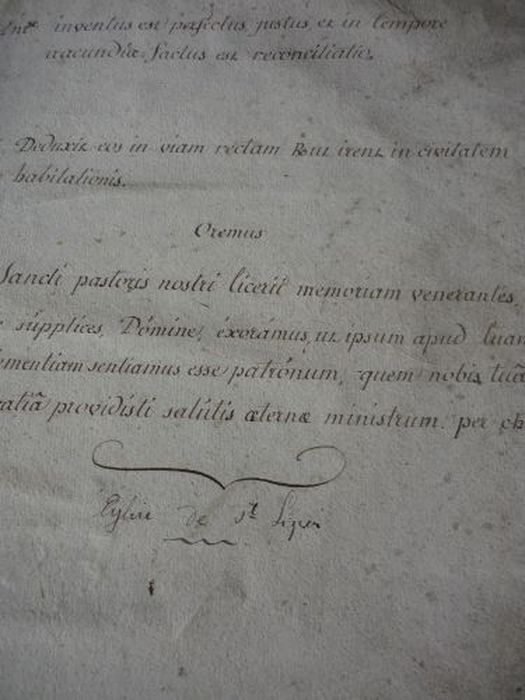 inventus est pafectus, justus et in tempore
iracundiæ factus est reconciliatio.
Deduxit eos in viam rectam ℟ ut irent in civitatem
habitationis.
Oremus
Sancti pastoris nostri licerii memoriam venerantes,
supplices, Dómine, éxorámus, ut ipsum apud tuam
ementiam sentiamus esse patrónum, quem nobis tuã
ratiã providisti salútis æternæ ministrum. per ch
Eglise de St Lizier